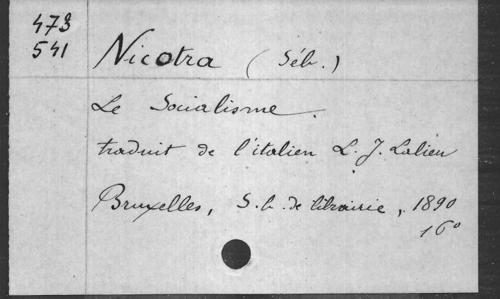 473
541
Nicotra (Séb.)
Le Socialisme.
traduit de l'italien L. J. Lalieu
Bruxelles, S. b. de librairie, 1890
16°